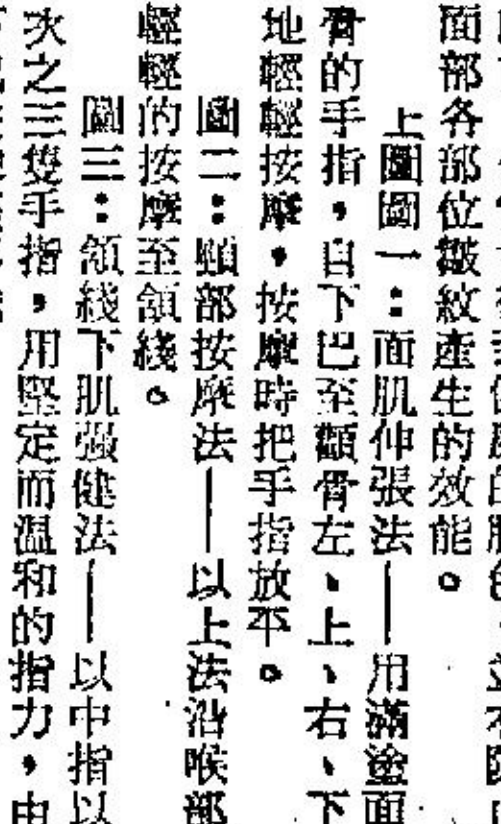 面部各部位皺紋產生的效能。
上圖圖一：面肌伸張法——用滿塗面
膏的手指，自下巴至顴骨左、上、右、下
地輕輕按摩，按摩時把手指放平。
圖二：頸部按摩法——以上法沿喉部
輕輕的按摩至頷綫。
圖三：頷綫下肌强健法——以中指以
次之三隻手指，用堅定而溫和的指力，由